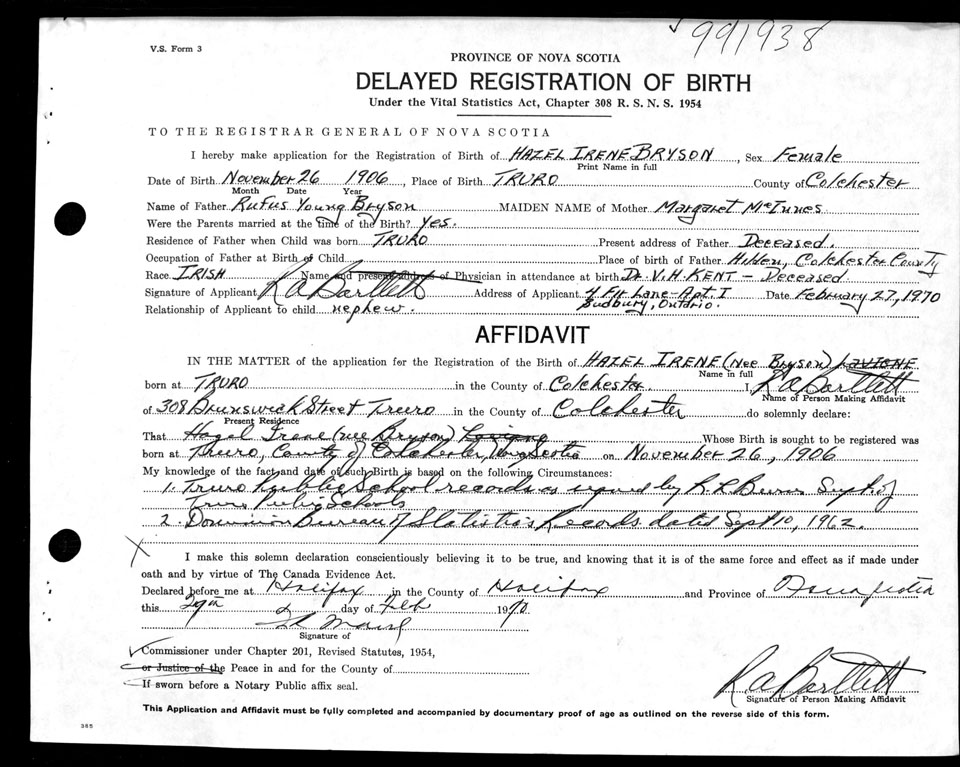 991938
V.S. Form 3
PROVINCE OF NOVA SCOTIA
DELAYED REGISTRATION OF BIRTH
Under the Vital Statistics Act, Chapter 308 R. S. N. S. 1954
TO THE REGISTRAR GENERAL OF NOVA SCOTIA
I hereby make application for the Registration of Birth of HAZEL IRENE BRYSON, Sex Female
Print Name in full
Date of Birth November 26 1906, Place of Birth TRURO County of Colchester
Month Date Year
Name of Father Rufus Young Bryson MAIDEN NAME of Mother Margaret McInnes
Were the Parents married at the time of the Birth? Yes.
Residence of Father when Child was born TRURO Present address of Father Deceased.
Occupation of Father at Birth of Child Place of birth of Father Hilden, Colchester County
Race IRISH Name and present address of Physician in attendance at birth Dr. V. H. KENT - Deceased
Signature of Applicant R A Bartlett Address of Applicant 4 Fir Lane Apt. I Date February 27, 1970
Sudbury, Ontario.
Relationship of Applicant to child nephew.
AFFIDAVIT
IN THE MATTER of the application for the Registration of the Birth of HAZEL IRENE (Nee Bryson) LAVIGNE
Name in full
born at TRURO in the County of Colchester. I, R A Bartlett
Name of Person Making Affidavit
of 308 Brunswick Street Truro in the County of Colchester do solemnly declare:
Present Residence
That Hazel Irene (nee Bryson) Lavigne Whose Birth is sought to be registered was
born at Truro, County of Colchester, Nova Scotia on November 26, 1906
My knowledge of the fact and date of such Birth is based on the following Circumstances:
1. Truro Public School records as signed by R. L. Supt. of
Truro Public Schools
2. Dominion Bureau of Statistics Records dated Sept 10, 1962.
X
I make this solemn declaration conscientiously believing it to be true, and knowing that it is of the same force and effect as if made under
oath and by virtue of The Canada Evidence Act.
Declared before me at Halifax in the County of Halifax and Province of Nova Scotia
this 27th day of Feb 1970
Signature of
Commissioner under Chapter 201, Revised Statutes, 1954,
or Justice of the Peace in and for the County of
If sworn before a Notary Public affix seal.
R A Bartlett
Signature of Person Making Affidavit
This Application and Affidavit must be fully completed and accompanied by documentary proof of age as outlined on the reverse side of this form.
385